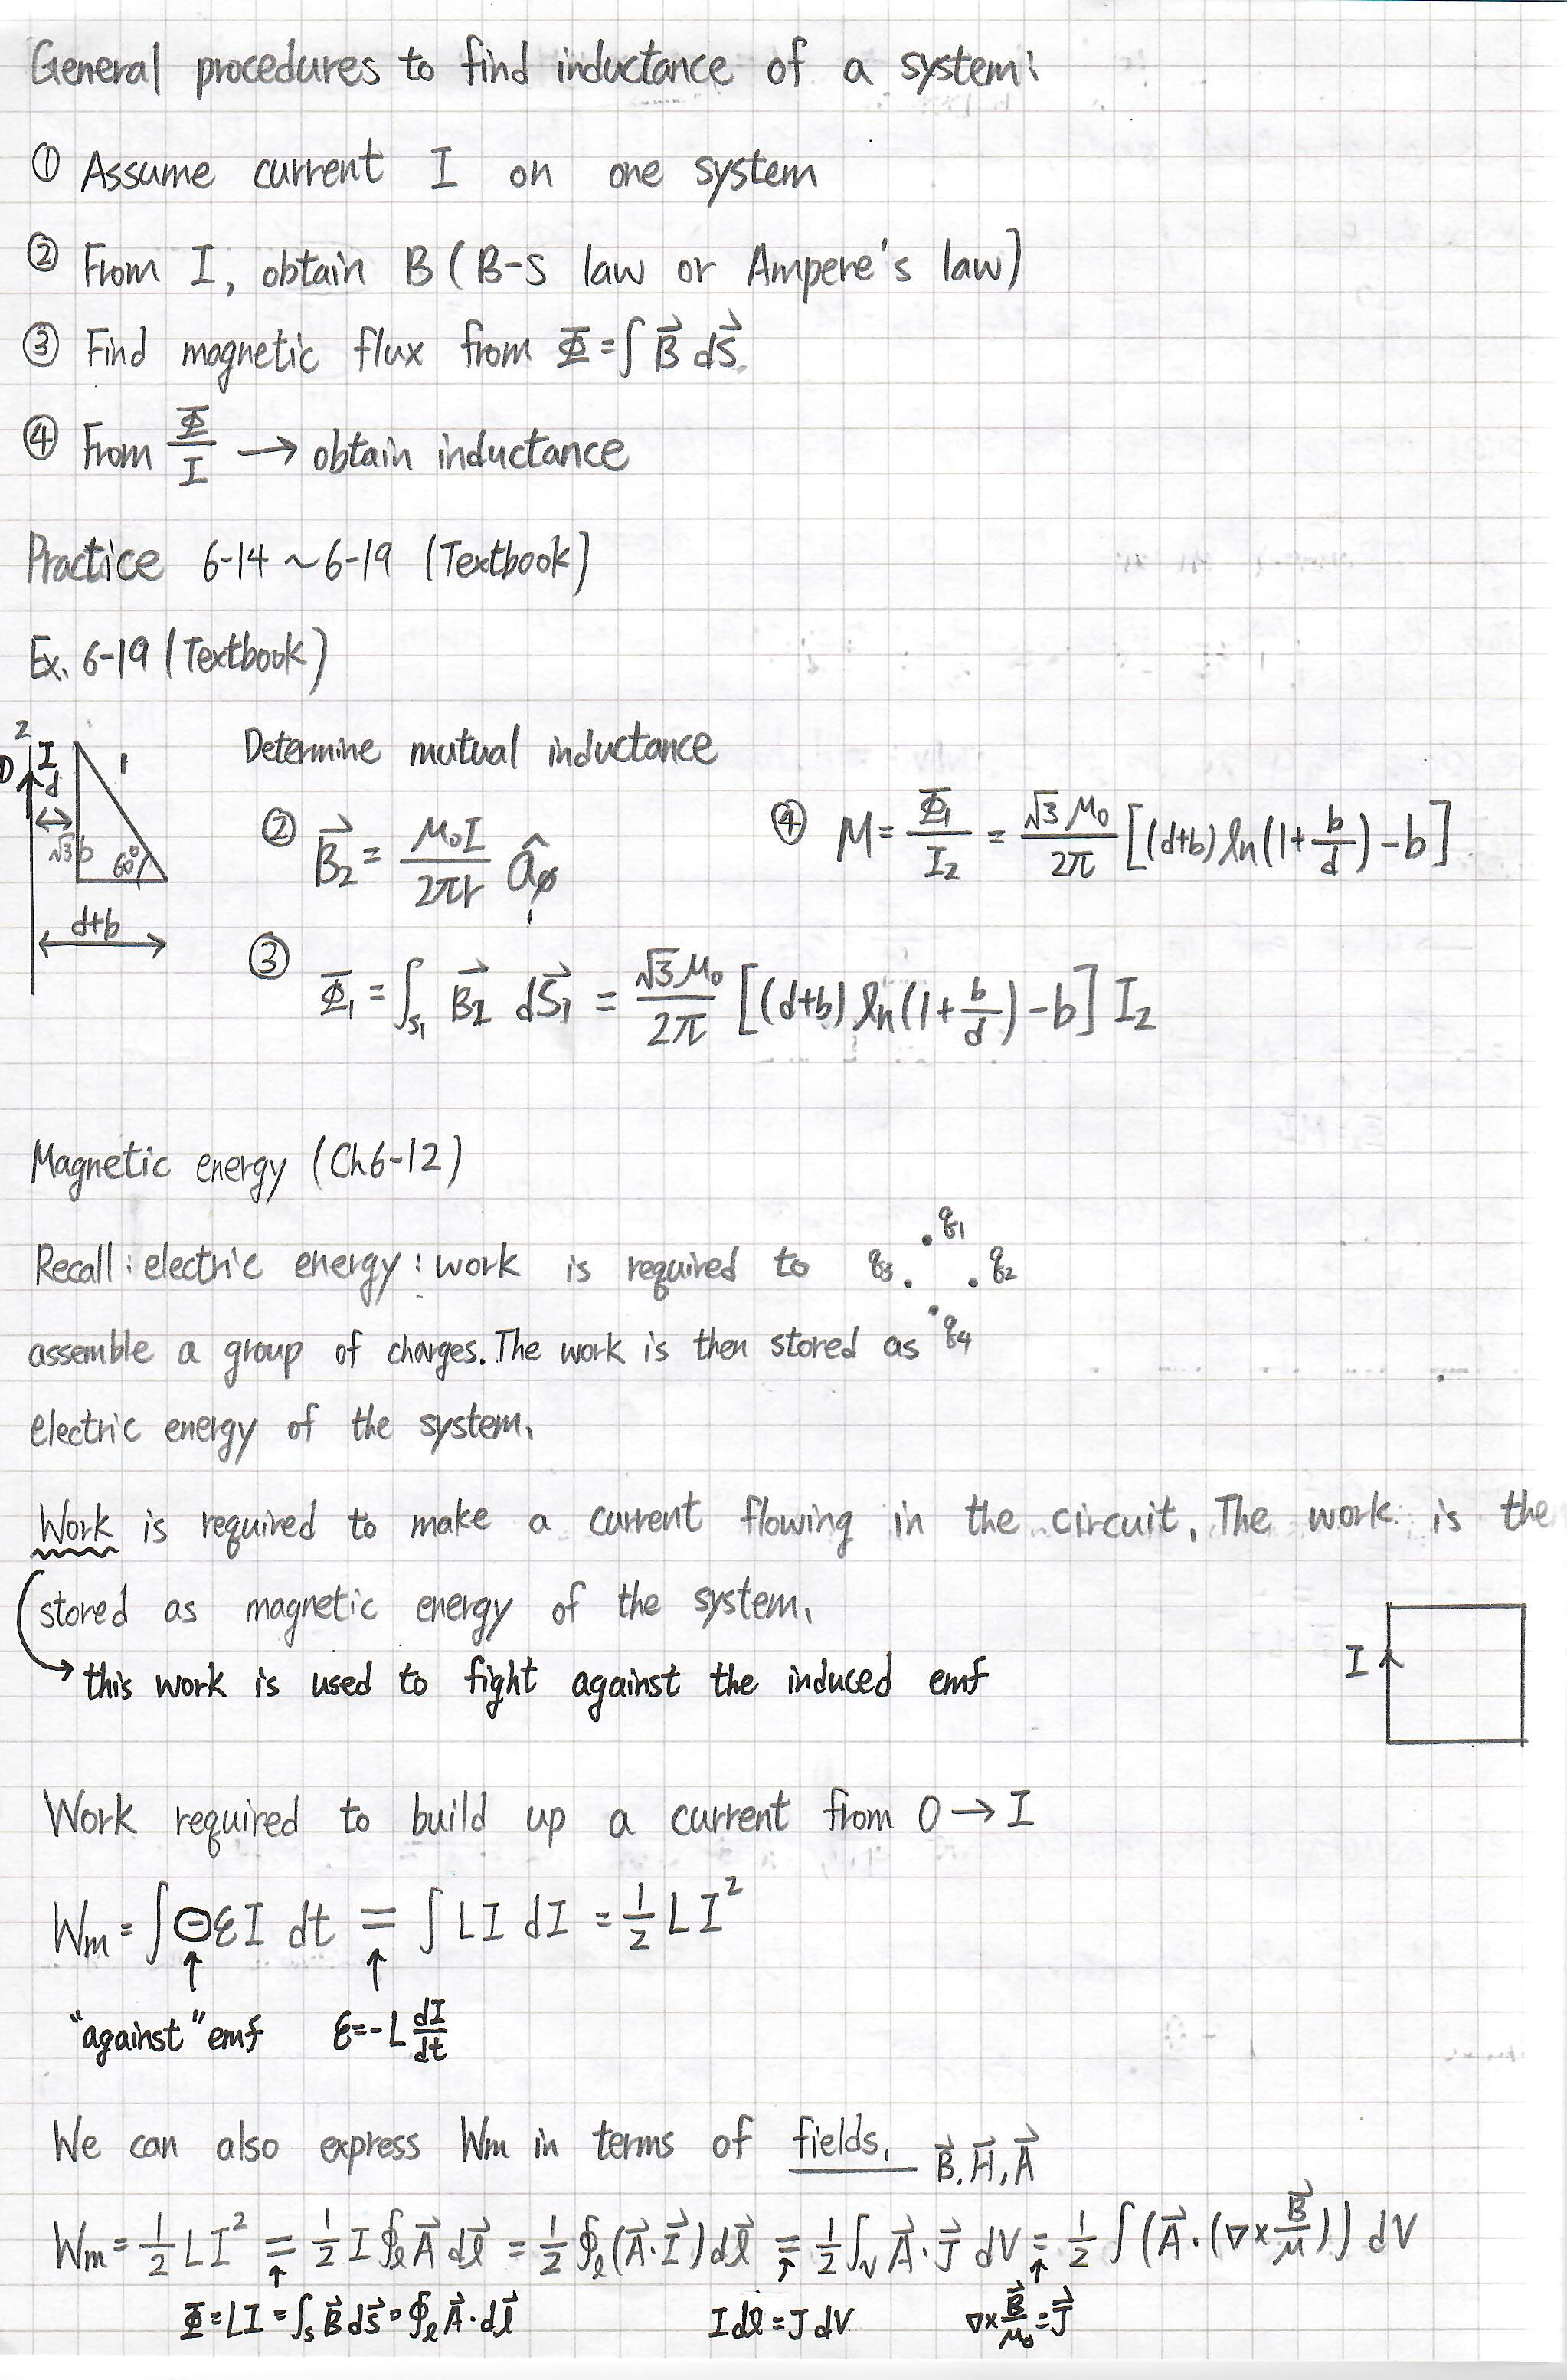 General procedures to find inductance of a system:
① Assume current I on one system
② From I, obtain B (B-S law or Ampere's law)
③ Find magnetic flux from Φ = ∫ B⃗ dS⃗
④ From Φ/I → obtain inductance
Practice 6-14 ~ 6-19 (Textbook)
Ex. 6-19 (Textbook)
2
① I
d
1
√3b 60°
d+b
Determine mutual inductance
② B⃗₂ = μ₀I/2πr â_φ
④ M = Φ₁/I₂ = √3μ₀/2π [(d+b) ln(1+b/d) - b]
③ Φ₁ = ∫_S₁ B⃗₂ dS⃗₁ = √3μ₀/2π [(d+b) ln(1+b/d) - b] I₂
Magnetic energy (Ch6-12)
Recall: electric energy: work is required to
q₁
q₃ q₂
q₄
assemble a group of charges. The work is then stored as
electric energy of the system.
Work is required to make a current flowing in the circuit. The work is the
stored as magnetic energy of the system.
I
→ this work is used to fight against the induced emf
Work required to build up a current from 0 → I
Wm = ∫ ⊖ ℰI dt = ∫ LI dI = 1/2 LI²
↑ ↑
"against" emf ℰ = -L dI/dt
We can also express Wm in terms of fields. B⃗, H⃗, A⃗
Wm = 1/2 LI² = 1/2 I ∮_ℓ A⃗ dℓ⃗ = 1/2 ∮_ℓ (A⃗·I⃗) dℓ⃗ = 1/2 ∫_V A⃗·J⃗ dV = 1/2 ∫ (A⃗·(∇×B⃗/μ)) dV
↑ ↑ ↑
Φ = LI = ∫_S B⃗ dS⃗ = ∮_ℓ A⃗·dℓ⃗ Idℓ = JdV ∇×B⃗/μ₀ = J⃗